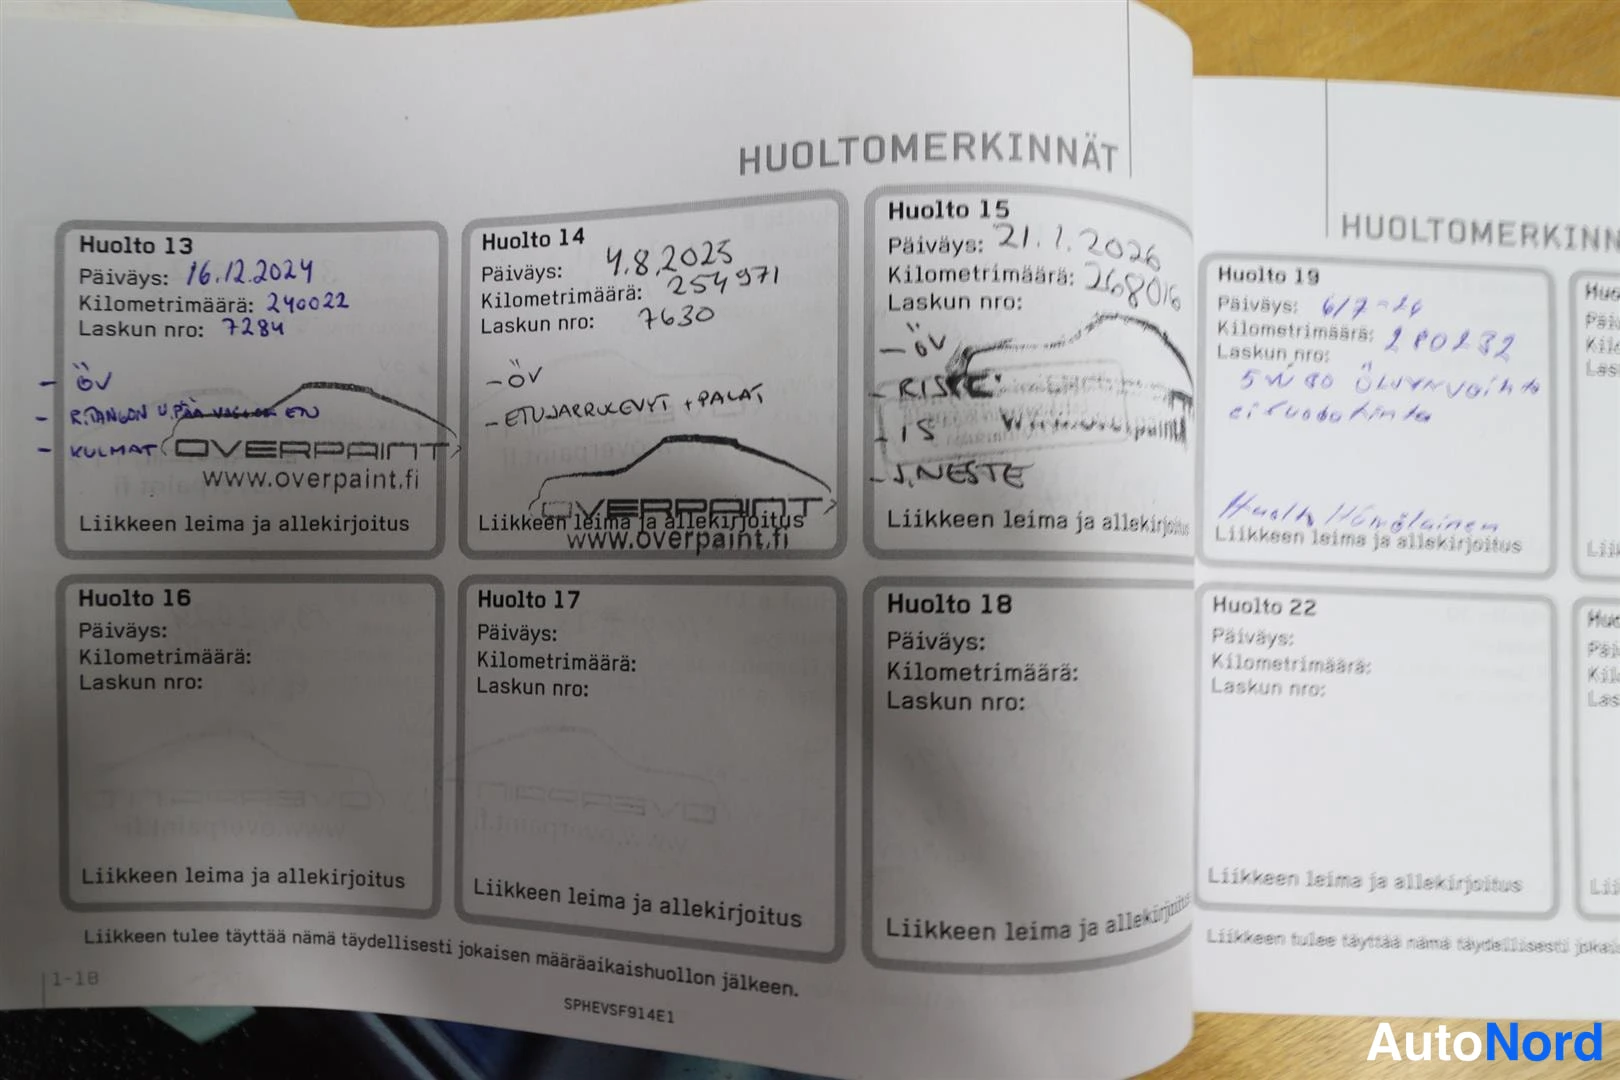 HUOLTOMERKINNÄT
Huolto 13
Päiväys: 16.12.2024
Kilometrimäärä: 240022
Laskun nro: 7284
- ÖV
- R.TANGON U.PÄÄ ETU
- KULMAT
OVERPAINT
www.overpaint.fi
Liikkeen leima ja allekirjoitus
Huolto 14
Päiväys: 4.8.2025
Kilometrimäärä: 254971
Laskun nro: 7630
- ÖV
- ETUJARRULEVYT + PALAT
OVERPAINT
Liikkeen leima ja allekirjoitus
www.overpaint.fi
Huolto 15
Päiväys: 21.1.2026
Kilometrimäärä: 268016
Laskun nro:
- ÖV
- IS
- J.NESTE
Liikkeen leima ja allekirjoitus
Huolto 16
Päiväys:
Kilometrimäärä:
Laskun nro:
Liikkeen leima ja allekirjoitus
Huolto 17
Päiväys:
Kilometrimäärä:
Laskun nro:
Liikkeen leima ja allekirjoitus
Huolto 18
Päiväys:
Kilometrimäärä:
Laskun nro:
Liikkeen leima ja allekirjoitus
Liikkeen tulee täyttää nämä täydellisesti jokaisen määräaikaishuollon jälkeen.
1-18
SPHEVSF914E1
HUOLTOMERKINN
Huolto 19
Päiväys: 6/7-24
Kilometrimäärä: 280232
Laskun nro:
5W30 Öljynvaihto
Huolto Hämäläinen
Liikkeen leima ja allekirjoitus
Huolto 22
Päiväys:
Kilometrimäärä:
Laskun nro:
Liikkeen leima ja allekirjoitus
Liikkeen tulee täyttää nämä täydellisesti
AutoNord